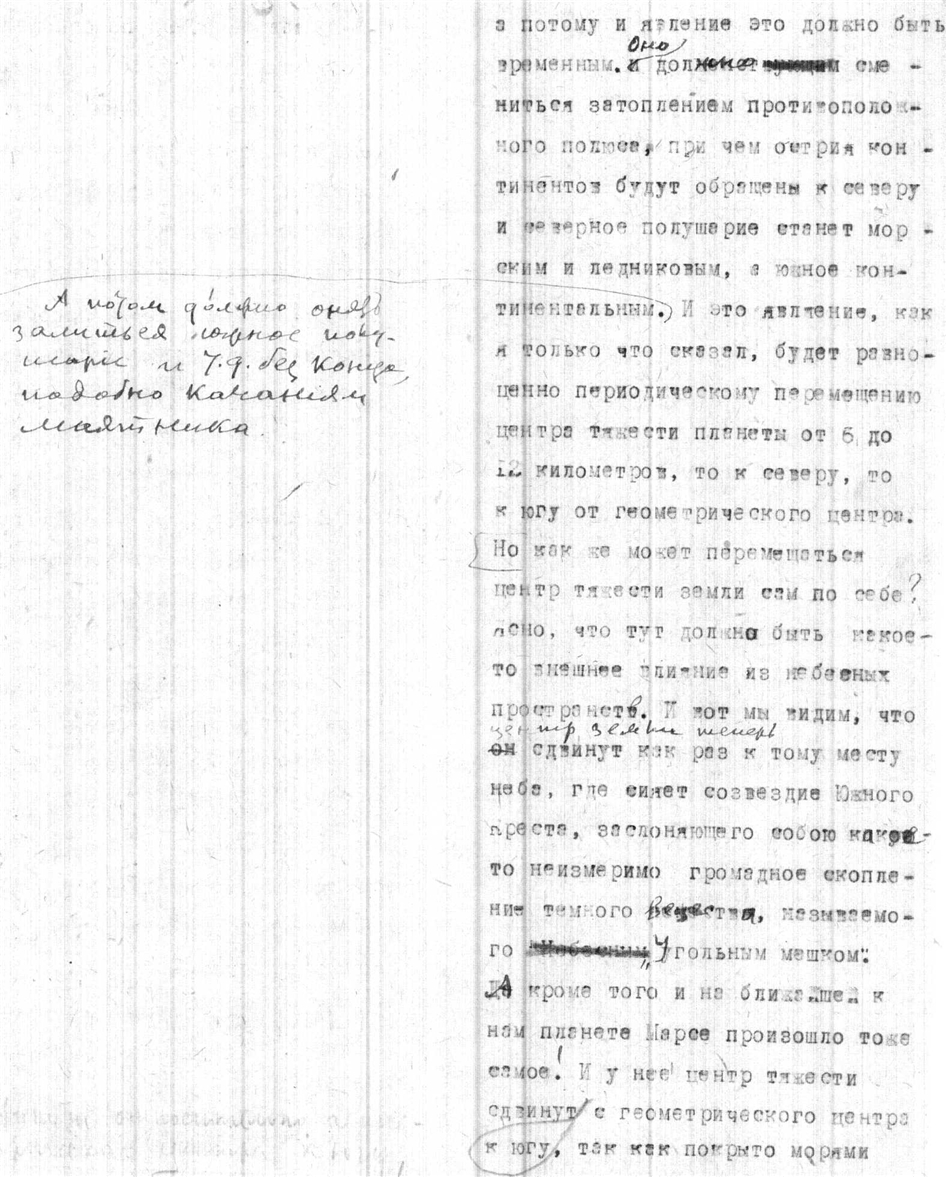 а потому и явление это должно быть
Оно
временным. и должно сме -
ниться затоплением противополож-
ного полюса, при чем острия кон -
тинентов будут обращены к северу
и северное полушарие станет мор -
ским и ледниковым, а южное кон-
тиментальным. И это явление, как
я только что сказал, будет равно-
ценно периодическому перемещению
центра тяжести планеты от 6 до
12 километров, то к северу, то
к югу от геометрического центра.
Но как же может перемещаться
центр тяжести земли сам по себе?
Ясно, что тут должно быть какое-
то внешнее влияние из небесных
пространств. И вот мы видим, что
центр земли теперь
он сдвинут как раз к тому месту
неба, где сияет созвездие Южного
креста, заслоняющего собою какое-
то неизмеримо громадное скопле-
ние темного вещества, называемо-
го Небесным „Угольным мешком".
А кроме того и на ближайшей к
нам планете Марсе произошло тоже
самое! И у нее центр тяжести
сдвинут с геометрического центра
к югу, так как покрыто морями
А потом должно опять
залиться южное полу-
шарие и т.д. без конца,
подобно качаниям
маятника